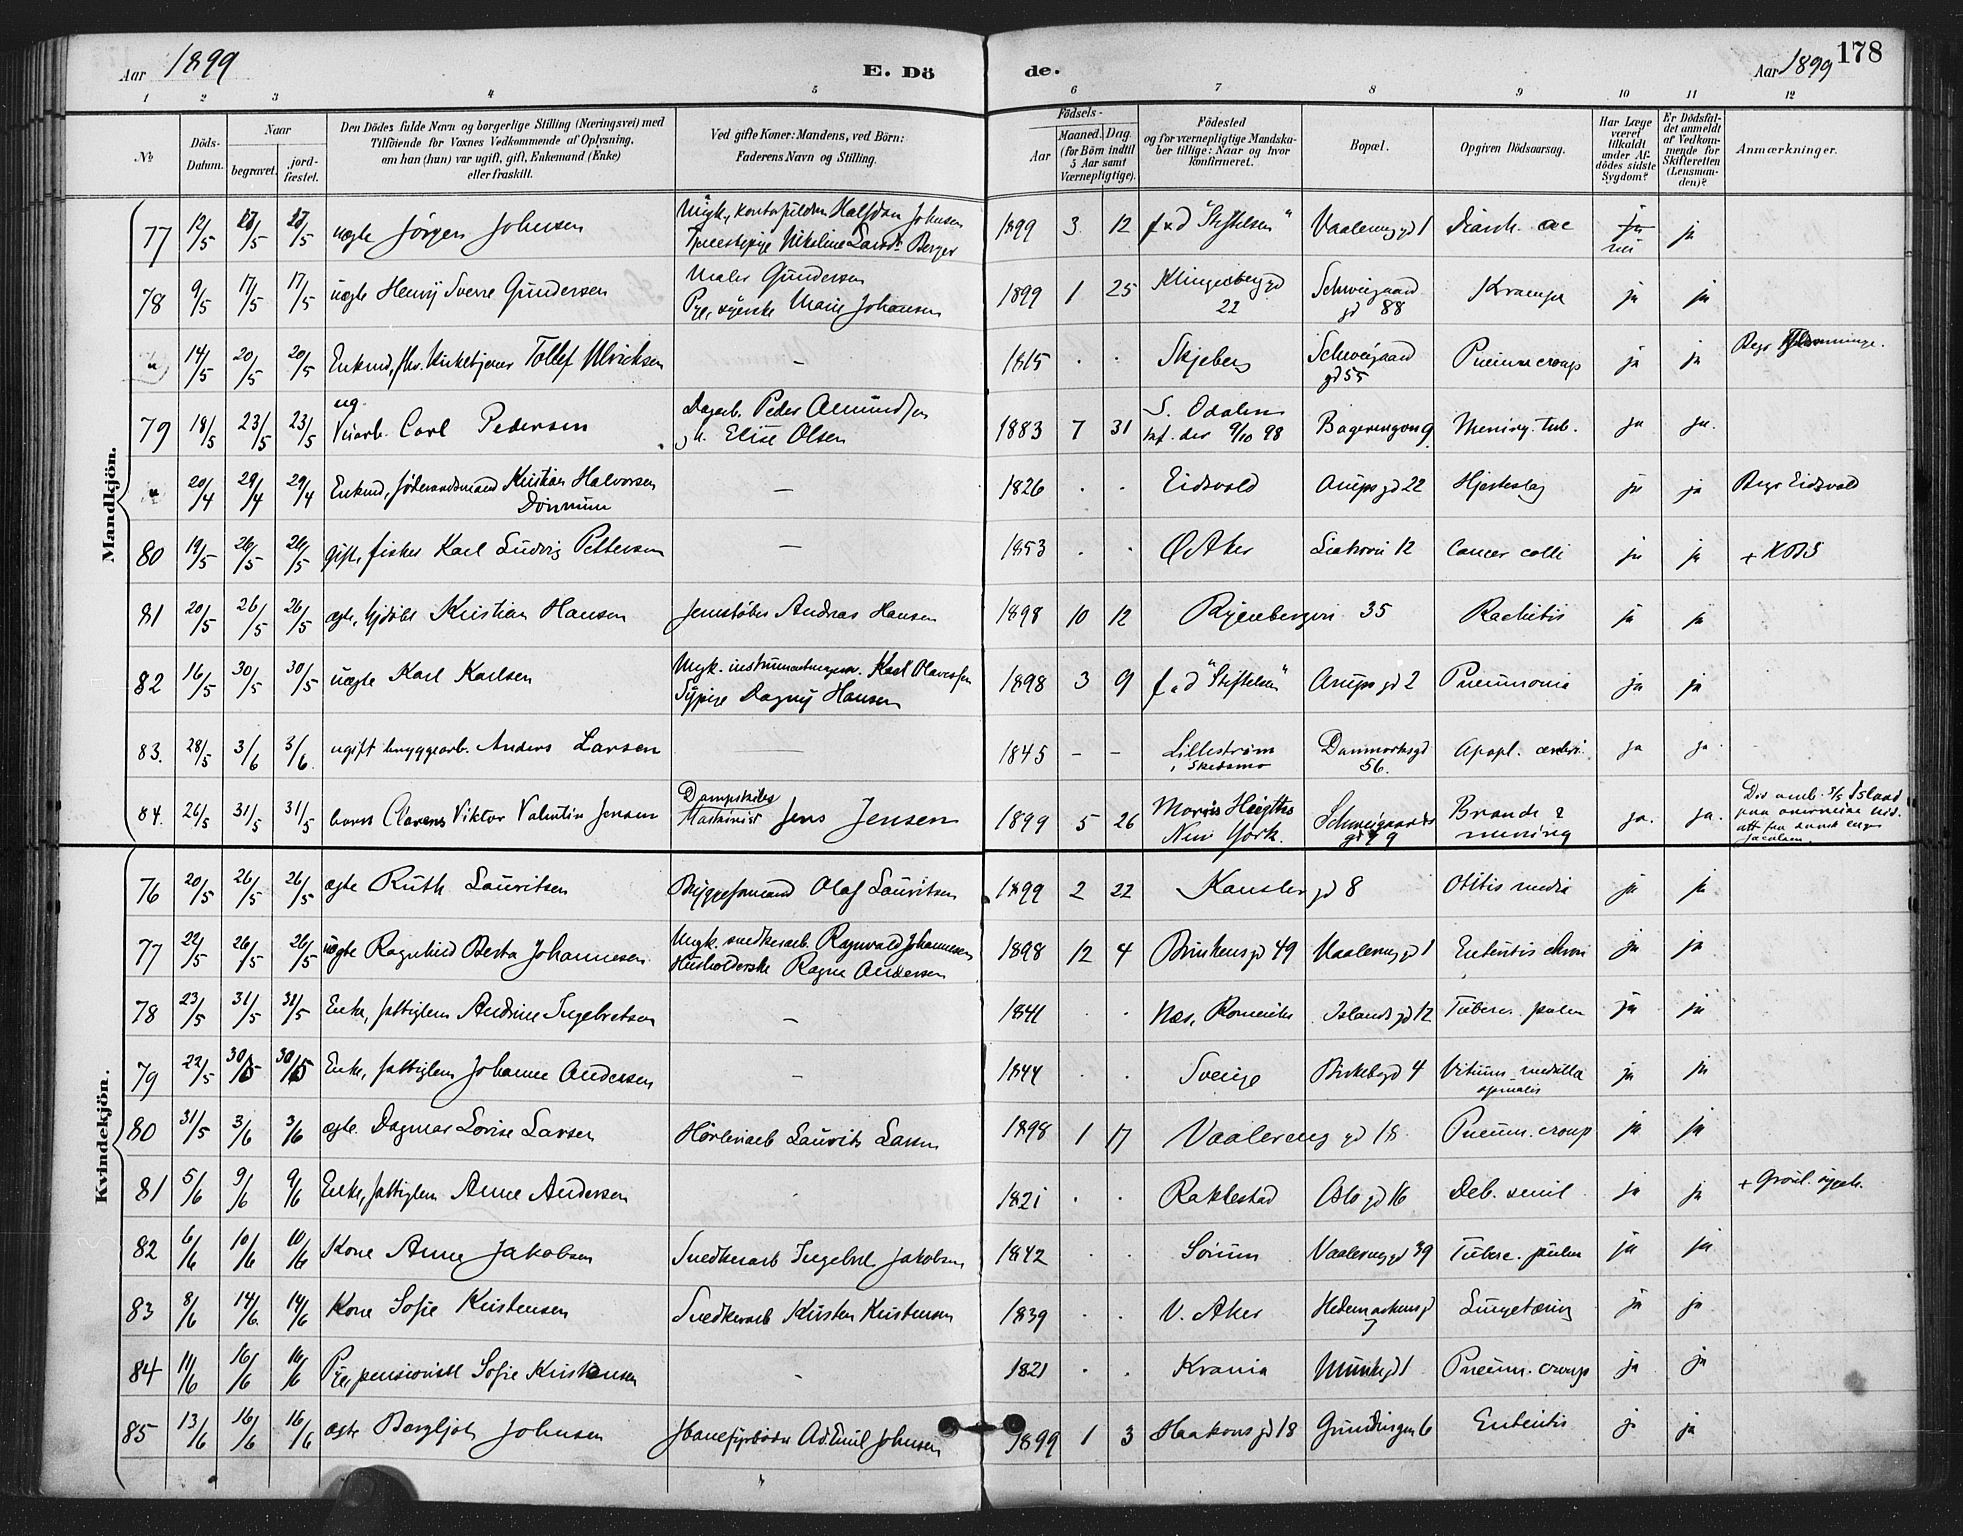 Aar 1899
E. Dö
de.
Aar 1899
178
1 2 3 4 5 6 7 8 9 10 11 12
№
Döds-
Datum.
Naar
begravet.
jord-
fæstet.
Den Dödes fulde Navn og borgerlige Stilling (Næringsvei) med
Tilföiende for Voxnes Vedkommende af Oplysning,
om han (hun) var ugift, gift, Enkemand (Enke)
eller fraskilt.
Ved gifte Koner: Mandens, ved Börn:
Faderens Navn og Stilling.
Födsels-
Aar
Maaned.
Dag.
(for Börn indtil
5 Aar samt
Værnepligtige).
Födested
og for værnepligtige Mandska-
ber tillige: Naar og hvor
konfirmeret.
Bopæl.
Opgiven Dödsaarsag.
Har Læge
været
tilkaldt
under Af-
dödes sidste
Sygdom?
Er Dödsfal-
det anmeldt
af Vedkom-
mende for
Skifteretten
(Lensman-
den)?
Anmærkninger.
Mandkjön.
77 12/5 17/5 17/5 uægte Jörgen Johnsen
Ungk. Halfdan Johnsen
Berger
1899 3 12 f. a d "Stiftelsen" Vaalerengd 1 ja nei ja
78 9/5 17/5 17/5 uægte Henry Sverre Gundersen
Maler Gundersen
Pge, syerske Marie Johansen
1899 1 25 Klingenberggd 22 Schweigaard gd 88 Krampe ja ja
" 14/5 20/5 20/5 Enkmd, fhv. Kirketjener Tollef Ulriksen
– 1815 . . Skjeberg Schweigaard gd 55 Pneum. croup ja ja Begr.
79 18/5 23/5 23/5 ug. Carl Pedersen
Dagarb. Peder Amundsen
og h. Elise Olsen
1883 7 31 S. Odalen
konf. der 9/10 98 9 Mening. tub. ja ja.
" 20/4 29/4 29/4 Enkmd, föderaadsmand Kristian Halvorsen
Dönnum
– 1826 . . Eidsvold Arupsgd 22 Hjerteslag ja ja Begr. Eidsvold
80 19/5 26/5 26/5 gift, fisker Karl Ludvig Pettersen
– 1853 . . Ö. Aker 12 Cancer colli ja ja
81 20/5 26/5 26/5 ægte, Kristian Hansen
Jernstöber Andreas Hansen
1898 10 12 Ryenbergvei 35 Rachitis ja ja
82 16/5 30/5 30/5 uægte Karl Karlsen
Ungk. Karl Olavesen
Sypige Dagny Hansen
1898 3 9 f. a d "Stiftelsen" Arupsgd 2 Pneumonia ja ja
83. 28/5 3/6 3/6. ugift bryggearb. Anders Larsen
– 1845 – – Lilleström
i Skedsmo Danmarksgd
56. Apopl. cerebri. ja ja.
84. 26/5 31/5 31/5 barn Clarens Viktor Valentin Jensen
Dampskibs
Maskinist Jens Jensen
1899 5 26 Morris Heigths
New York. Schweigaards
gd 79 mening ja. ja.
Kvindekjön.
76 20/5 26/5 26/5 ægte Ruth Lauritsen
Bryggeformand Olaf Lauritsen
1899 2 22 Kanslergd 8 Otitis media ja ja
77 22/5 26/5 26/5 uægte Ragnhild Berta Johannesen
Ungk. snedkerarb. Ragnvald Johannesen
Husholderske Ragna Andersen
1898 12 4 Brinkensgd 49 Vaalerengd 1 Enteritis chron ja ja
78 23/5 31/5 31/5 Enke, fattiglem Andrine Ingebretsen
– 1841 . . Nes, Romerike Islandsgd 12 Tuberc. pulm ja ja
79 22/5 30/5 30/5 Enke, fattiglem Johanne Andersen
– 1844 . . Sverige Birkebgd 4 Vitium medulla
spinalis ja ja
80 31/5 3/6 3/6 ægte Dagmar Lovise Larsen
Laurits Larsen
1898 1 17 Vaalerenggd 18 Pneum. croup ja ja
81 5/6 9/6 9/6 Enke, fattiglem Anne Andersen
1821 . . Rakkestad Oslogd 16 Deb. senil. ja ja
82 6/6 10/6 10/6 Kone Anne Jakobsen
Snedkerarb Ingebret Jakobsen
1842 . . Sörum Vaalerenggd 39 Tuberc. pulm ja ja
83 8/6 14/6 14/6 Kone Sofie Kristensen
Snedkerarb Kristen Kristensen
1839 . . V. Aker Hedemarkensgd
7 Lungetæring ja ja
84 11/6 16/6 16/6 Pge, pensionist Sofie Kristensen
- 1821 . . Krania Munkegd 1 Pneum. croup ja ja
85 13/6 16/6 16/6 ægte Bergljot Johnsen
Jbanefyrböder Ad. Emil Johnsen
1899 1 3 Haakonsgd 18 Gründingen 6 Enteritis ja ja